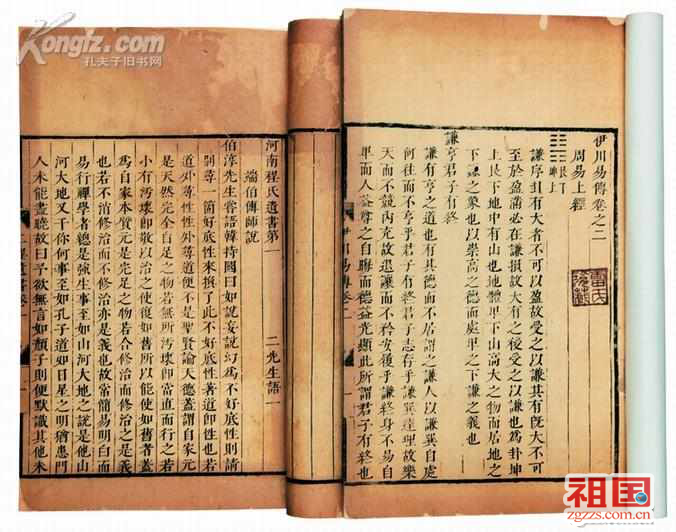 伊川易傳卷之二
周易上經
艮下
坤上
謙序卦有大者不可以盈故受之以謙其有旣大不可
至於盈滿必在謙損故大有之後受之以謙也爲卦坤
上艮下地中有山也地體卑下山高大之物而居地之
下謙之象也以崇高之德而處卑之下謙之義也
謙亨君子有終
謙有亨之道也有其德而不居謂之謙人以謙巽自處
何往而不亨乎君子有終君子志存乎謙巽達理故樂
天而不競内充故退讓而不矜安履乎謙終身不易自
卑而人益尊之自晦而德益光顯此所謂君子有終也
伊川易傳卷二
河南程氏遺書第一 二先生語一
端伯傳師說
伯淳先生嘗語韓持國曰如說妄說幻爲不好底性則請
別尋一箇好底性來換了此不好底性著道卽性也若
道外尋性性外尋道便不是聖賢論天德蓋謂自家元
是天然完全自足之物若無所汚壞卽當直而行之若
小有汚壞卽敬以治之使復如舊所以能使如舊者蓋
爲自家本質元是完足之物若合修治而修治之是義
也若不消修治而不修治亦是義也故常簡易明白而
易行禪學者總是强生事至如山河大地之說是他山
河大地又干你何事至如孔子道如日星之明猶患門
人未能盡曉故曰予欲無言如顏子則便默識其他未
二程遺書卷一
Kongfz.com
孔夫子旧书网
祖国
zgzzs.com.cn